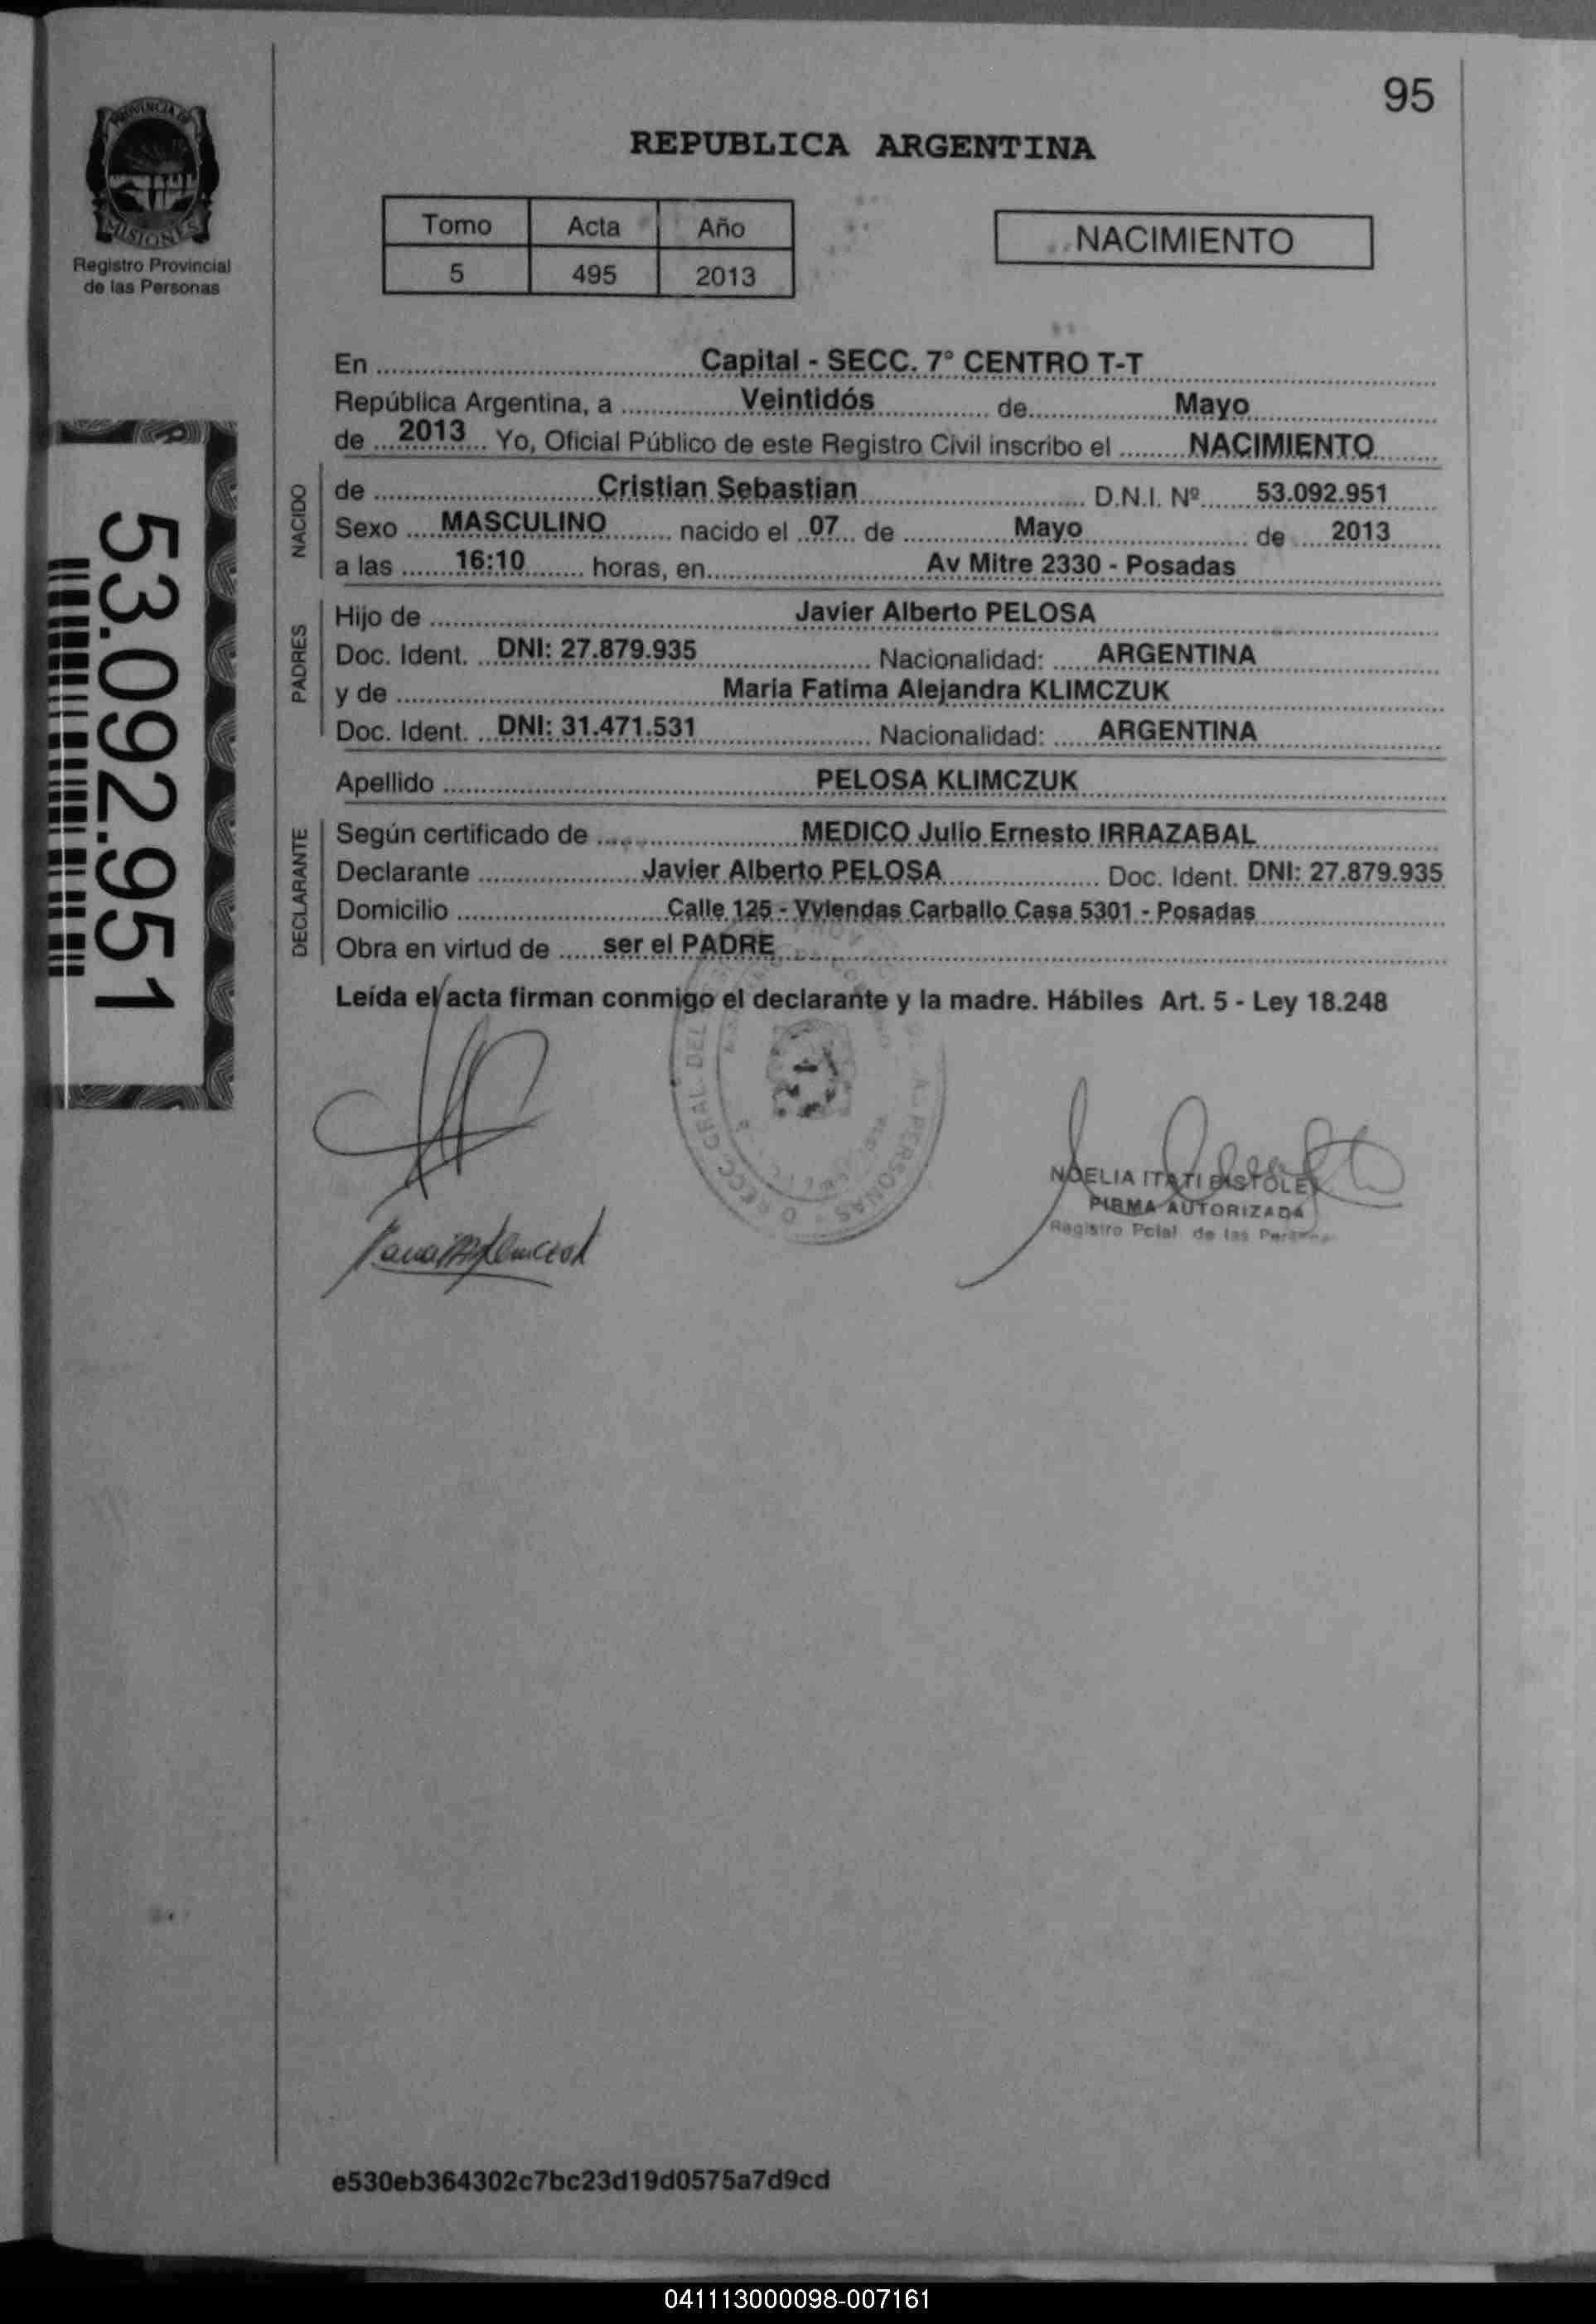 95
PROVINCIA DE
MISIONES
Registro Provincial
de las Personas
REPUBLICA ARGENTINA
Tomo Acta Año
5 495 2013
NACIMIENTO
En Capital - SECC. 7° CENTRO T-T
República Argentina, a Veintidós de Mayo
de 2013 Yo, Oficial Público de este Registro Civil inscribo el NACIMIENTO
NACIDO
de Cristian Sebastian D.N.I. Nº 53.092.951
Sexo MASCULINO nacido el 07 de Mayo de 2013
a las 16:10 horas, en Av Mitre 2330 - Posadas
PADRES
Hijo de Javier Alberto PELOSA
Doc. Ident. DNI: 27.879.935 Nacionalidad: ARGENTINA
y de Maria Fatima Alejandra KLIMCZUK
Doc. Ident. DNI: 31.471.531 Nacionalidad: ARGENTINA
Apellido PELOSA KLIMCZUK
DECLARANTE
Según certificado de MEDICO Julio Ernesto IRRAZABAL
Declarante Javier Alberto PELOSA Doc. Ident. DNI: 27.879.935
Domicilio Calle 125 - Vviendas Carballo Casa 5301 - Posadas
Obra en virtud de ser el PADRE
Leída el acta firman conmigo el declarante y la madre. Hábiles Art. 5 - Ley 18.248
53.092.951
NOELIA ITATI
FIRMA AUTORIZADA
Registro Pcial de las
e530eb364302c7bc23d19d0575a7d9cd
041113000098-007161